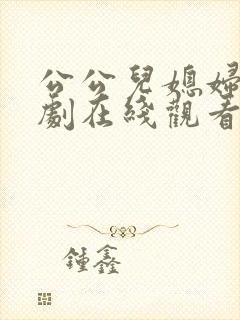 公公兒媳婦
劇在綫觀看
鍾鑫